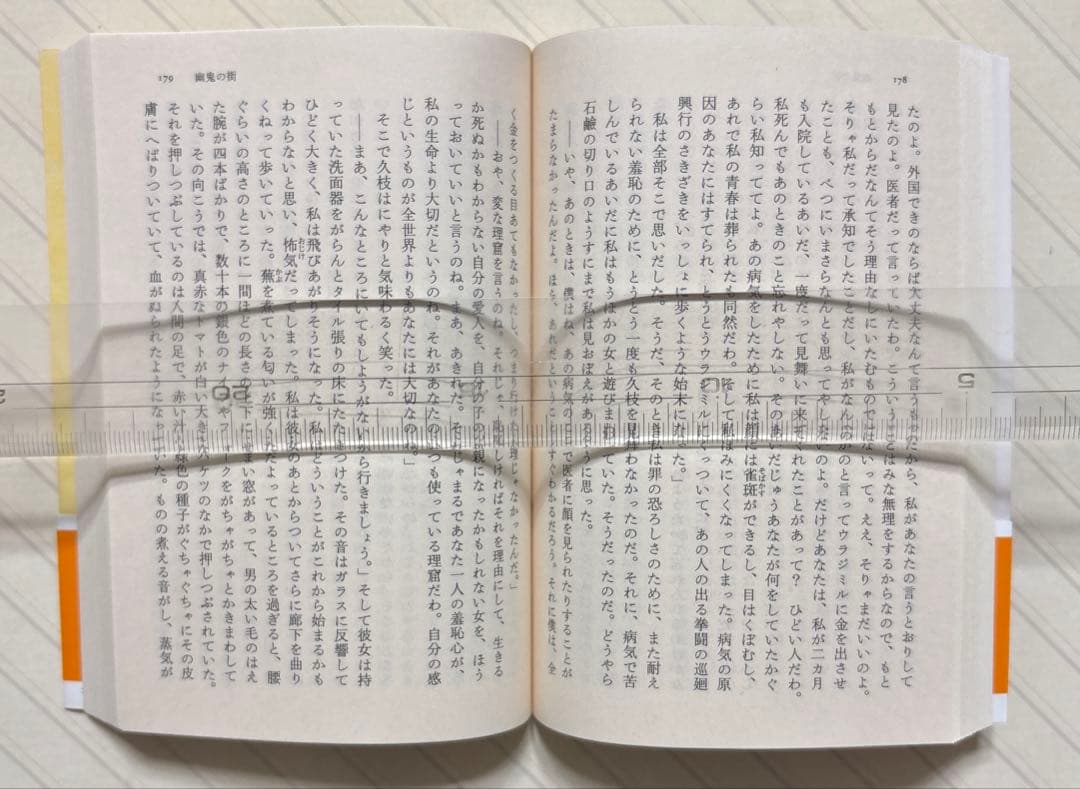 178
たのよ。外国できのならば大丈夫なんて言うもだから、私があなたの言うとおりして
見たのよ。医者だって言っていたわ。こういうことはみな無理をするからなので、もと
もとからだなんてそう理由なしにいたむものではないって。ええ、そりゃまだいいのよ。
そりゃ私だって承知でしたことだし、私がなんのと言ってウラジミルに金を出させ
たことも、べつにいまさらなんとも思ってやしないのよ。だけどあなたは、私が二カ月
も入院しているあいだ、一度だって見舞いに来てくれたことがあって? ひどい人だわ。
私死んでもあのときのこと忘れやしない。そのあいだじゅうあなたが何をしていたかぐ
らい私知っててよ。あの病気をしたために私は顔には雀斑ができるし、目はくぼむし、
そばかす
あれで私の青春は葬られたも同然だわ。そして私はみにくくなってしまった。病気の原
因のあなたにはすてられ、とうとうウラジミルにくっついて、あの人の出る拳闘の巡廻
興行のさきざきをいっしょに歩くような始末になった。」
私は全部そこで思いだした。そうだ、そのとき私は罪の恐ろしさのために、また耐え
られない羞恥のために、とうとう一度も久枝を見舞わなかったのだ。それに、病気で苦
しんでいるあいだに私はもうほかの女と遊びまわっていた。そうだったのだ。どうやら
石鹸の切り口のようすにまで私は見おぼえがあるように思った。
――いや、あのときは、僕はね、あの病気のことで医者に顔を見られたりすることが
たまらなかったんだよ。ほら、あれだということがすぐわかるだろう。それに僕は、全
179 幽鬼の街
く金をつくる目あてもなかったし、つまり行けも無理じゃなかったんだ。」
――おや、変な理窟を言うのね。それじゃ、羞恥しければそれを理由にして、生きる
か死ぬかもわからない自分の愛人を、自分の子の親になったかもしれない女を、ほう
っておいていいと言うのね。まあ、あきれた。それじゃまるであなた一人の羞恥心が、
私の生命より大切だというのね。それがあなたのいつも使っている理窟だわ。自分の感
じというものが全世界よりもあなたには大切なのね。」
そこで久枝はにやりと気味わるく笑った。
――まあ、こんなところにいてもしょうがないから行きましょう。」そして彼女は持
っていた洗面器をがらんとタイル張りの床にたたきつけた。その音はガラスに反響して
ひどく大きく、私は飛びあがりそうになった。私はどういうことがこれから始まるかも
わからないと思い、怖気だってしまった。私は彼女のあとからついてさらに廊下を曲り
おじけ
くねって歩いていった。蕪を煮ている匂いが強くただよっているところを過ぎると、腰
かぶ
ぐらいの高さのところに一間ほどの長さの下にせまい窓があって、男の太い毛のはえ
た腕が四本ばかりで、数十本の銀色のナイフやフォークをがちゃがちゃとかきまわして
いた。その向こうでは、真赤なトマトが白い大きなバケツのなかで押しつぶされていた。
それを押しつぶしているのは人間の足で、赤い汁と緑色の種子がぐちゃぐちゃにその皮
膚にへばりついていて、血がぬられたようになっていた。ものの煮える音がし、蒸気が
5
10